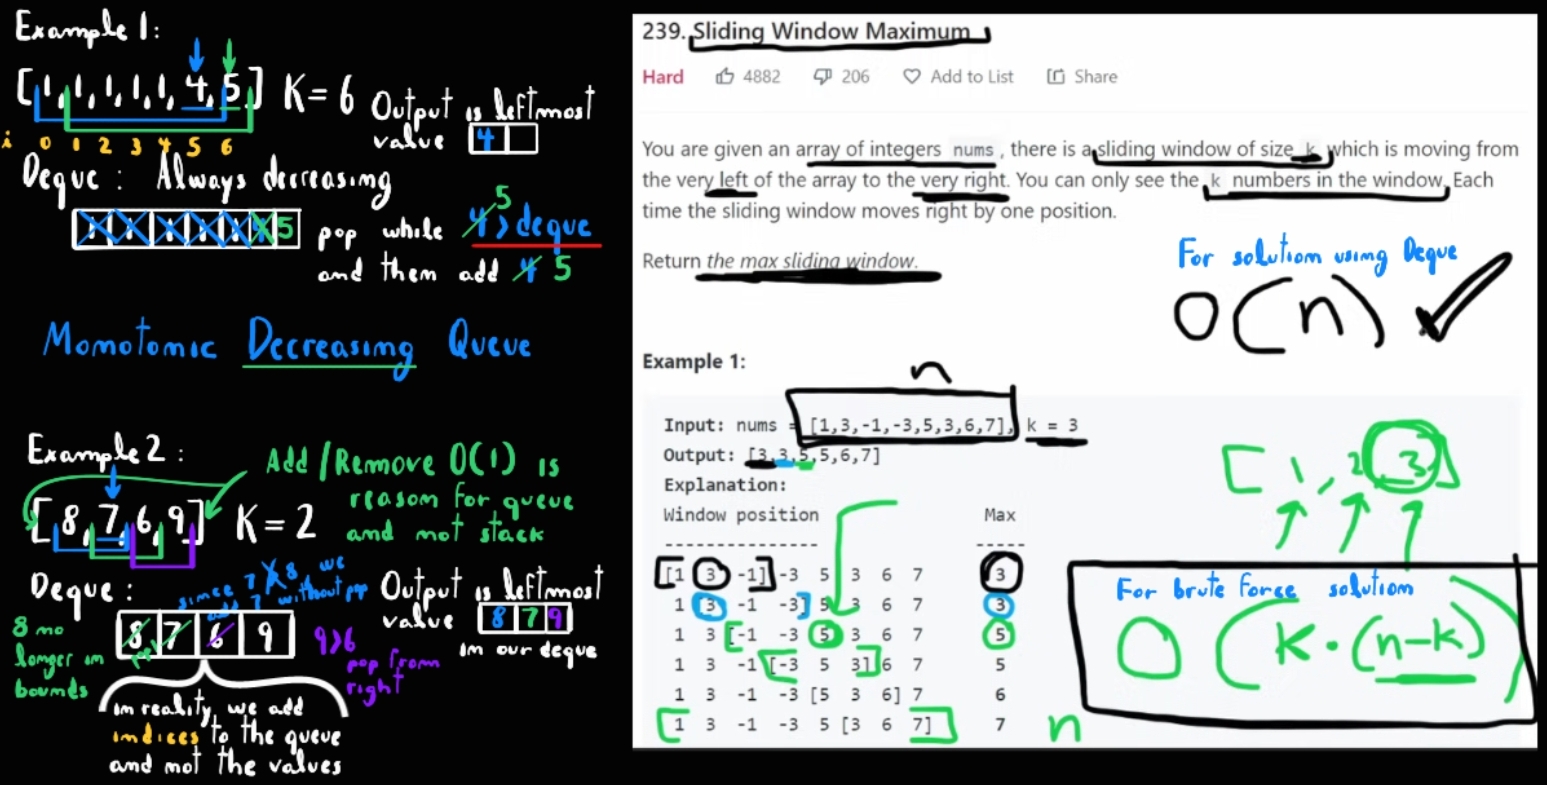 Example 1:
[1,1,1,1,1,4,5] K=6
i 0 1 2 3 4 5 6
Output is leftmost
value 4
Deque: Always decreasing
1 1 1 1 1 4 5
5
pop while 4 > deque
and them add 4 5
Momotomic Decreasing Queue
Example 2:
Add/Remove O(1) is
reason for queue
and mot stack
[8,7,6,9] K=2
Deque:
since 7 > 8 we
add 7 without pop
8 7 6 9
8 mo
longer im
boumds
9>6
pop from
right
Output is leftmost
value 8 7 9
im our deque
im reality, we add
imdices to the queue
and mot the values
239. Sliding Window Maximum
Hard 4882 206 Add to List Share
You are given an array of integers nums, there is a sliding window of size k which is moving from
the very left of the array to the very right. You can only see the k numbers in the window. Each
time the sliding window moves right by one position.
Return the max sliding window.
For solutiom usimg Deque
O(n)
Example 1:
n
Input: nums = [1,3,-1,-3,5,3,6,7], k = 3
Output: [3,3,5,5,6,7]
Explanation:
Window position Max
--------------- -----
[1 3 -1] -3 5 3 6 7 3
1 [3 -1 -3] 5 3 6 7 3
1 3 [-1 -3 5] 3 6 7 5
1 3 -1 [-3 5 3] 6 7 5
1 3 -1 -3 [5 3 6] 7 6
1 3 -1 -3 5 [3 6 7] 7
n
[1, 2 3]
For brute force solutiom
O(K·(n-k))